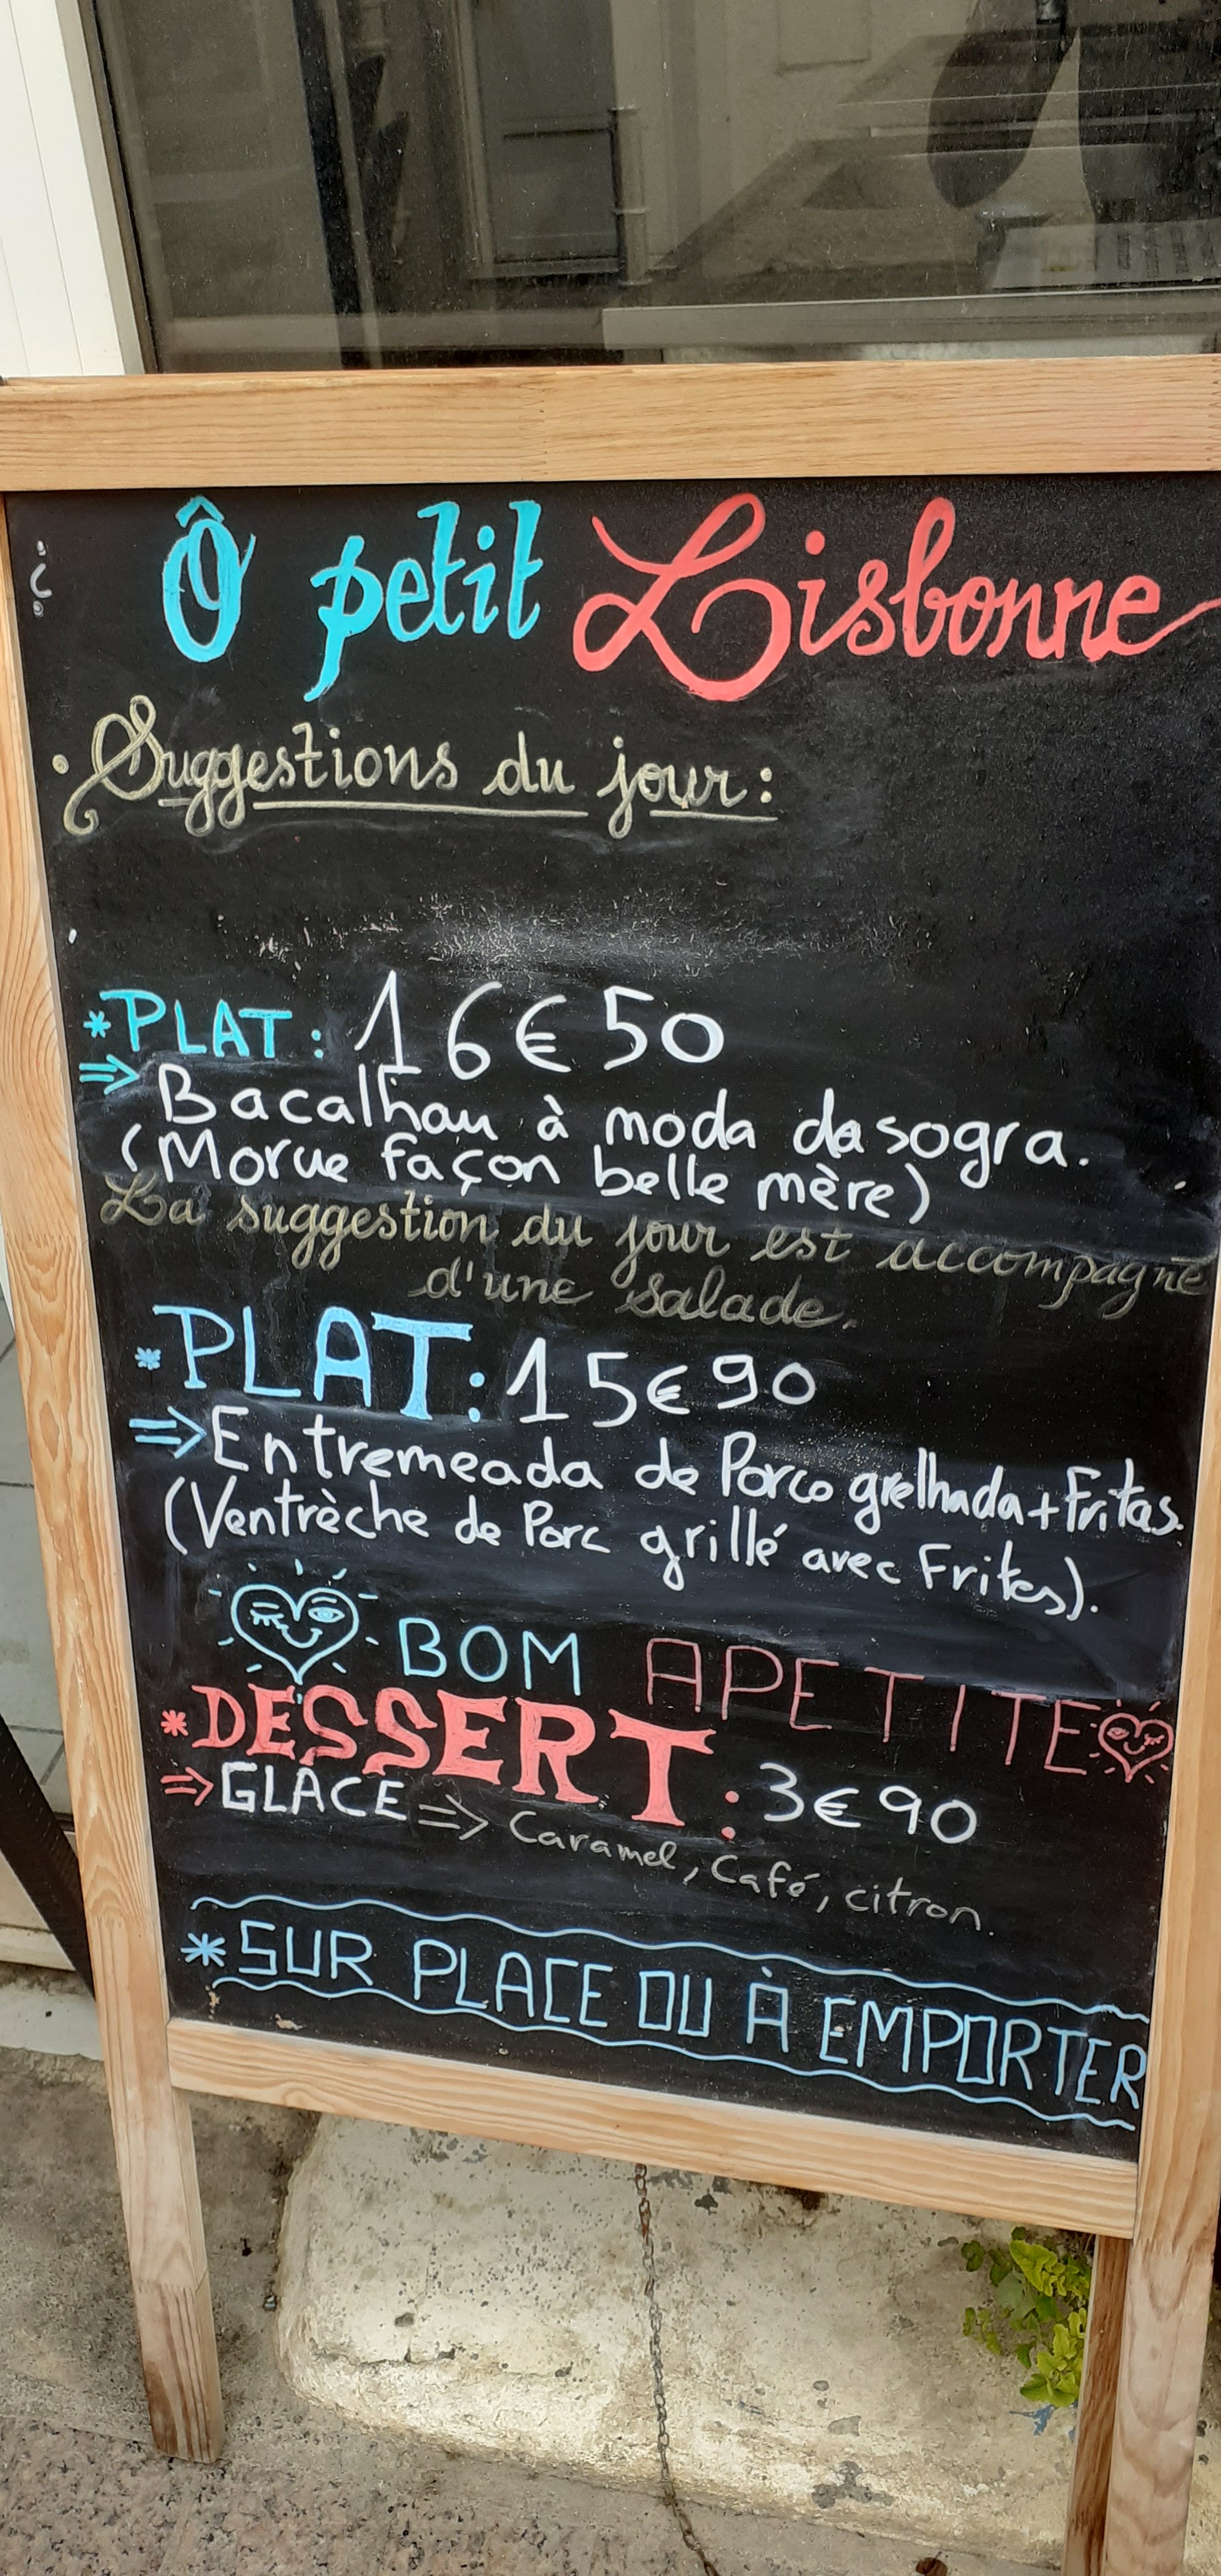 Ô petit Lisbonne
• Suggestions du jour :
* PLAT : 16€50
⇒ Bacalhau à moda da sogra.
(Morue façon belle mère)
La suggestion du jour est accompagné
d'une salade.
* PLAT : 15€90
⇒ Entremeada de Porco grelhada + Fritas.
(Ventrèche de Porc grillé avec Frites).
BOM APETITE
* DESSERT : 3€90
⇒ GLACE ⇒ Caramel, Café, citron.
* SUR PLACE OU À EMPORTER